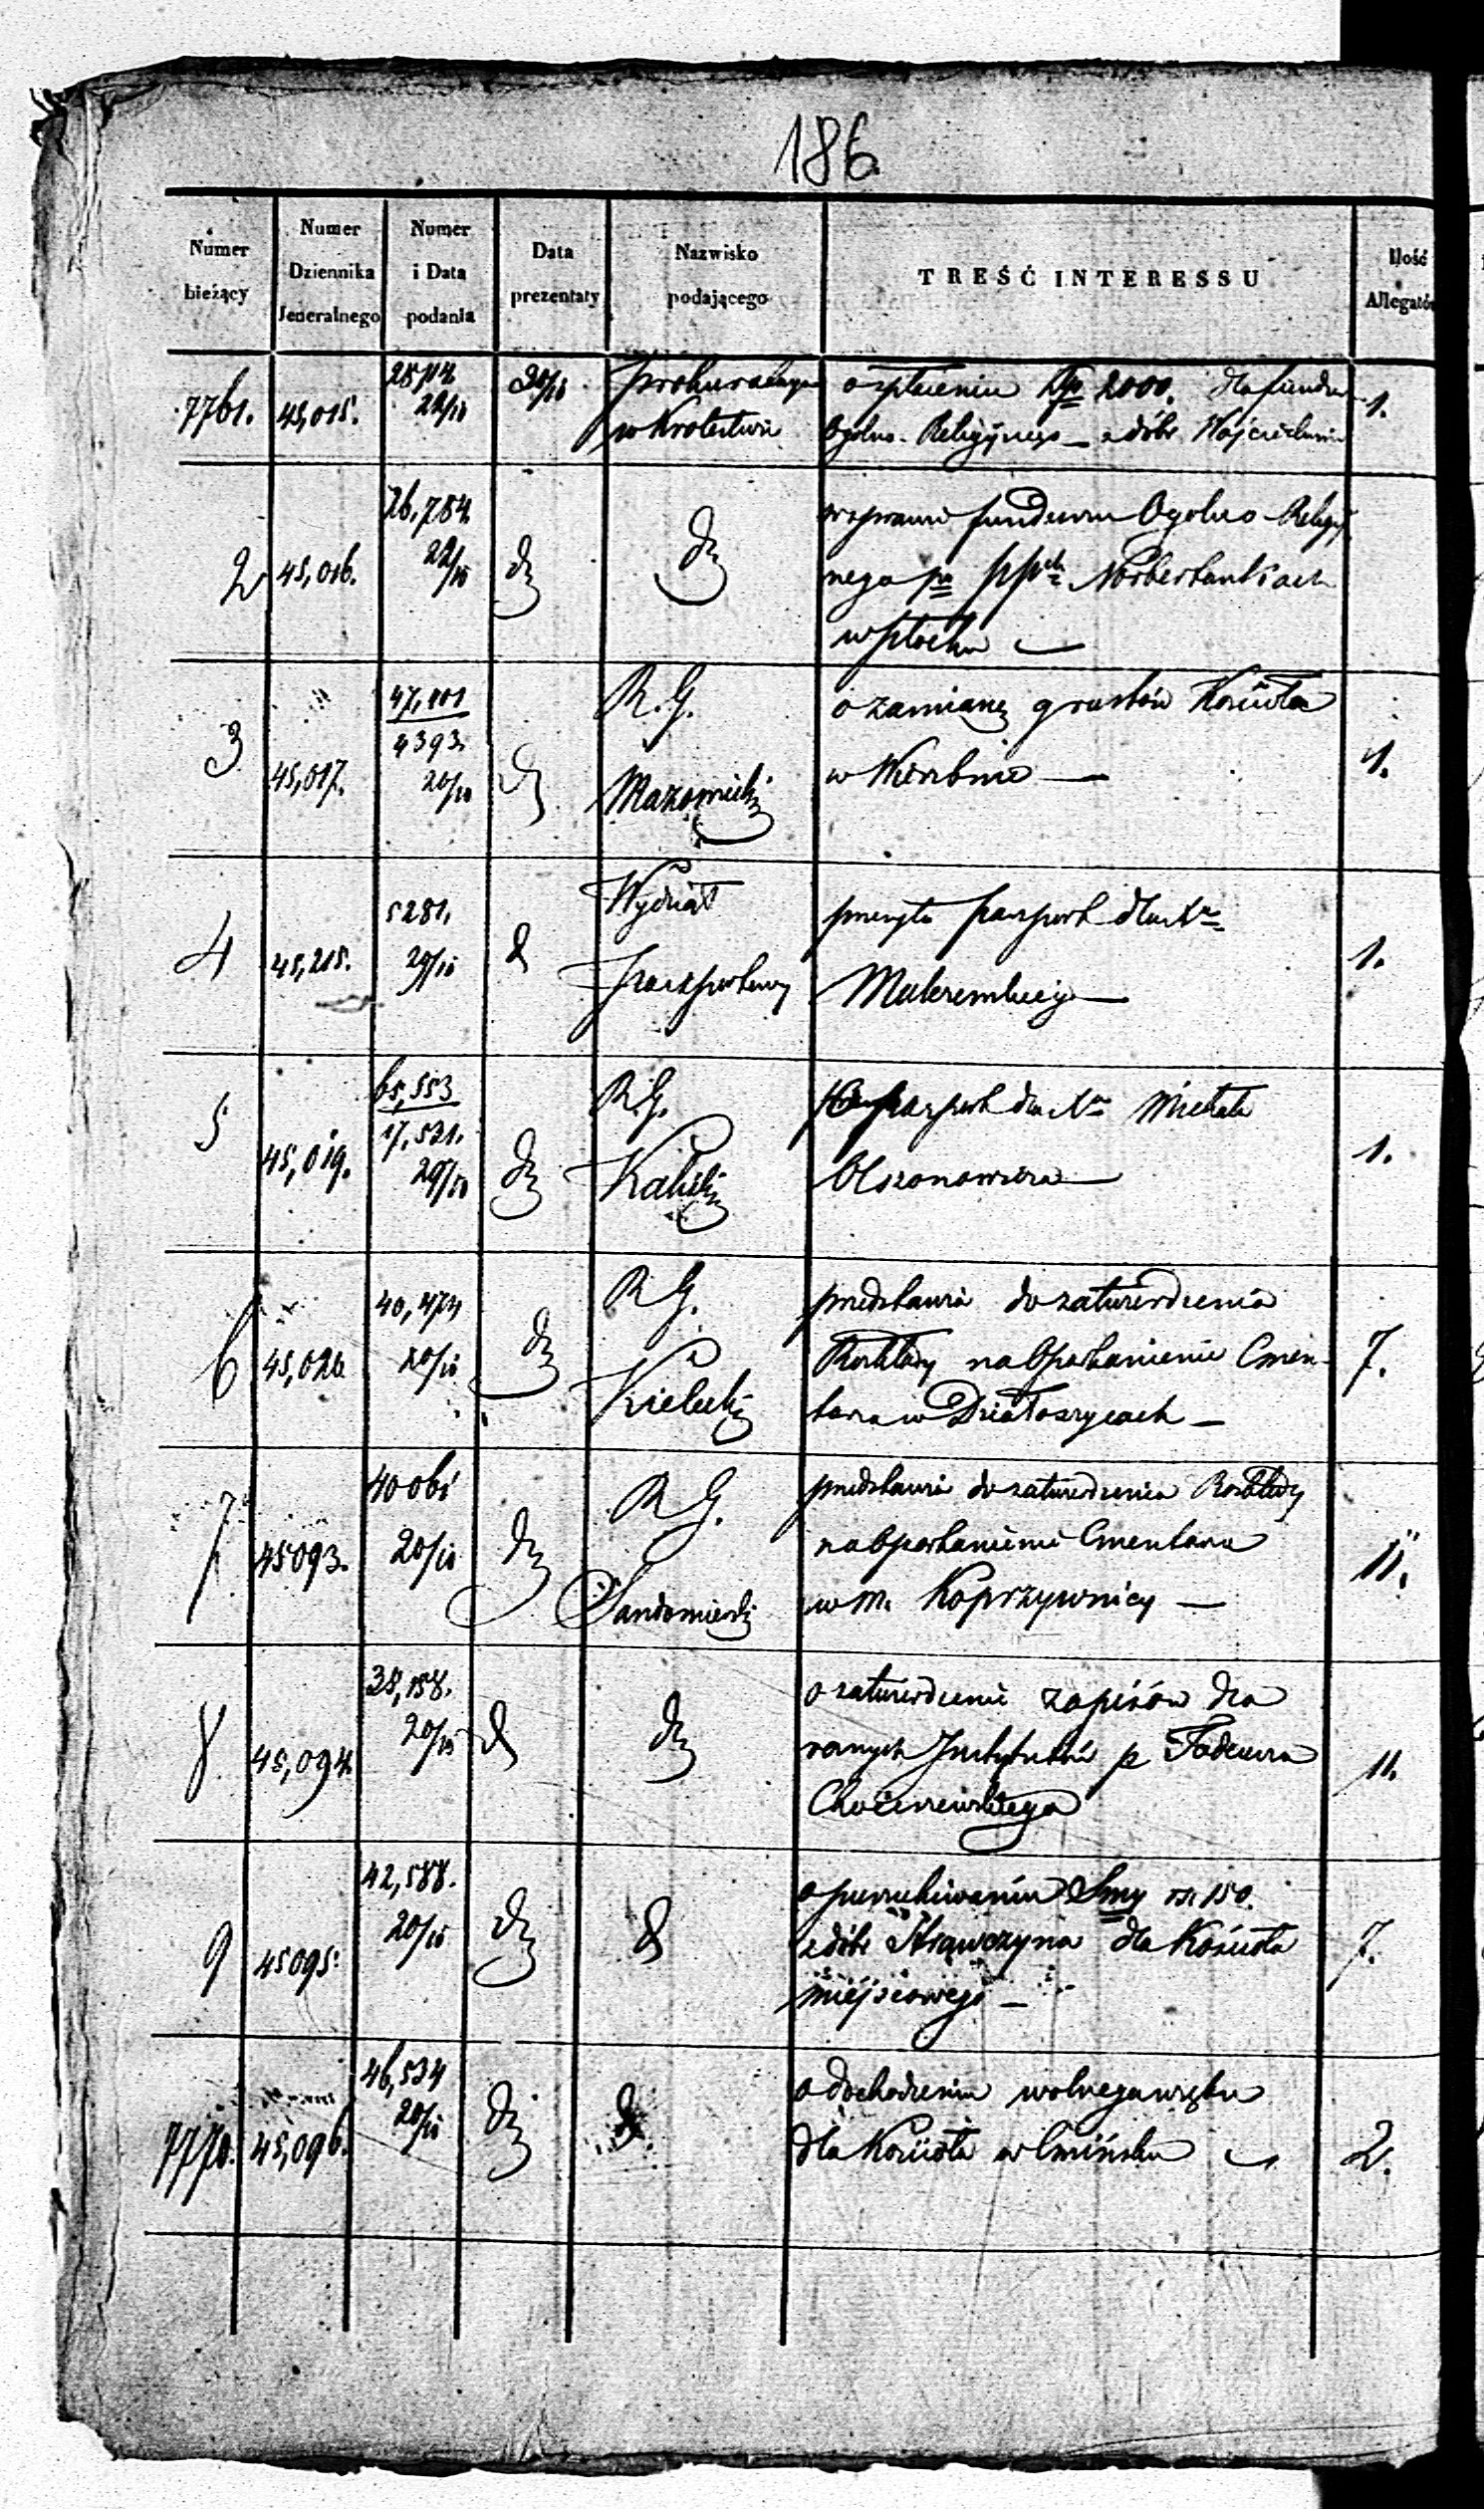 186.
Numer bieżący
Numer Dziennika Jeneralnego
Numer i Data podania
Data prezentaty
Nazwisko podającego
TREŚĆ INTERESSU
Ilość Allegatów
7761. 45,015. 22/10 30/10 Prokurator 1.
w Krolestwie
o spłaceniu 2000. dla fundu
Ogolno-Religijnego z dóbr
2 45,016. 26,784 22/10 do do
w sprawie funduszu Ogolno-Religij
nego po Norbertankach
w Płocku —
3 45,017. 47,101 4393. 20/10 do R. G. 1.
Mazowiecki
o zamianę gruntów Kościoła
w Wierzbnie —
4 45,215. 5281. 29/10 d Wydział 1.
Paszportowy
przesyła paszport dla
5 45,019. 65,553 17,531. 29/10 do R. G. 1.
Kaliski
paszport dla Michała
6 45,02 40,474 20/10 do R G. 7.
Kielecki
przedstawia do zatwierdzenia
Rozkłady na Oparkanienie Cmen-
tarza w Działoszycach —
7 45093. 4006 20/10 do R G. 11.
Sandomierski
przedstawia do zatwierdzenia Rozkłady
na Oparkanienie Cmentarza
w m. Koprzywnicy —
8 45,094. 38,158. 20/10 d do 11.
o zatwierdzenie zapisów dla
roznych Instytutów p Tadeusza
9 45095. 42,588. 20/10 do d 7.
o poszukiwaniu Smy rs. 150.
z dóbr Strawczyna dla Kościoła
miejscowego —
7770. 45,096. 46,534 20/10 do d 2.
o dochodzeniu wolnego wrębu
dla Kościoła w Cmińsku